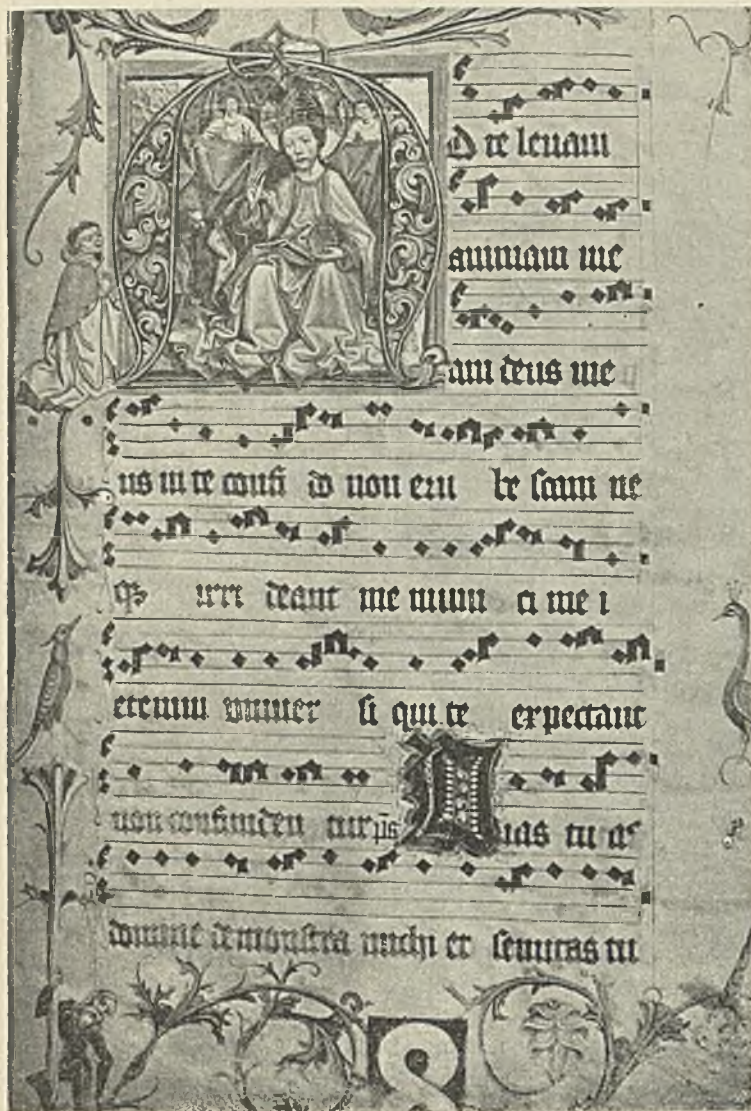 Ad te leuaui
animam me
am deus me
us in te confi do non eru be scam ne
qꝫ irri deant me inimi ci me i
etenim vniuer si qui te expectant
non confunden tur p̄s Vias tuas
domine demonstra michi et semitas tu